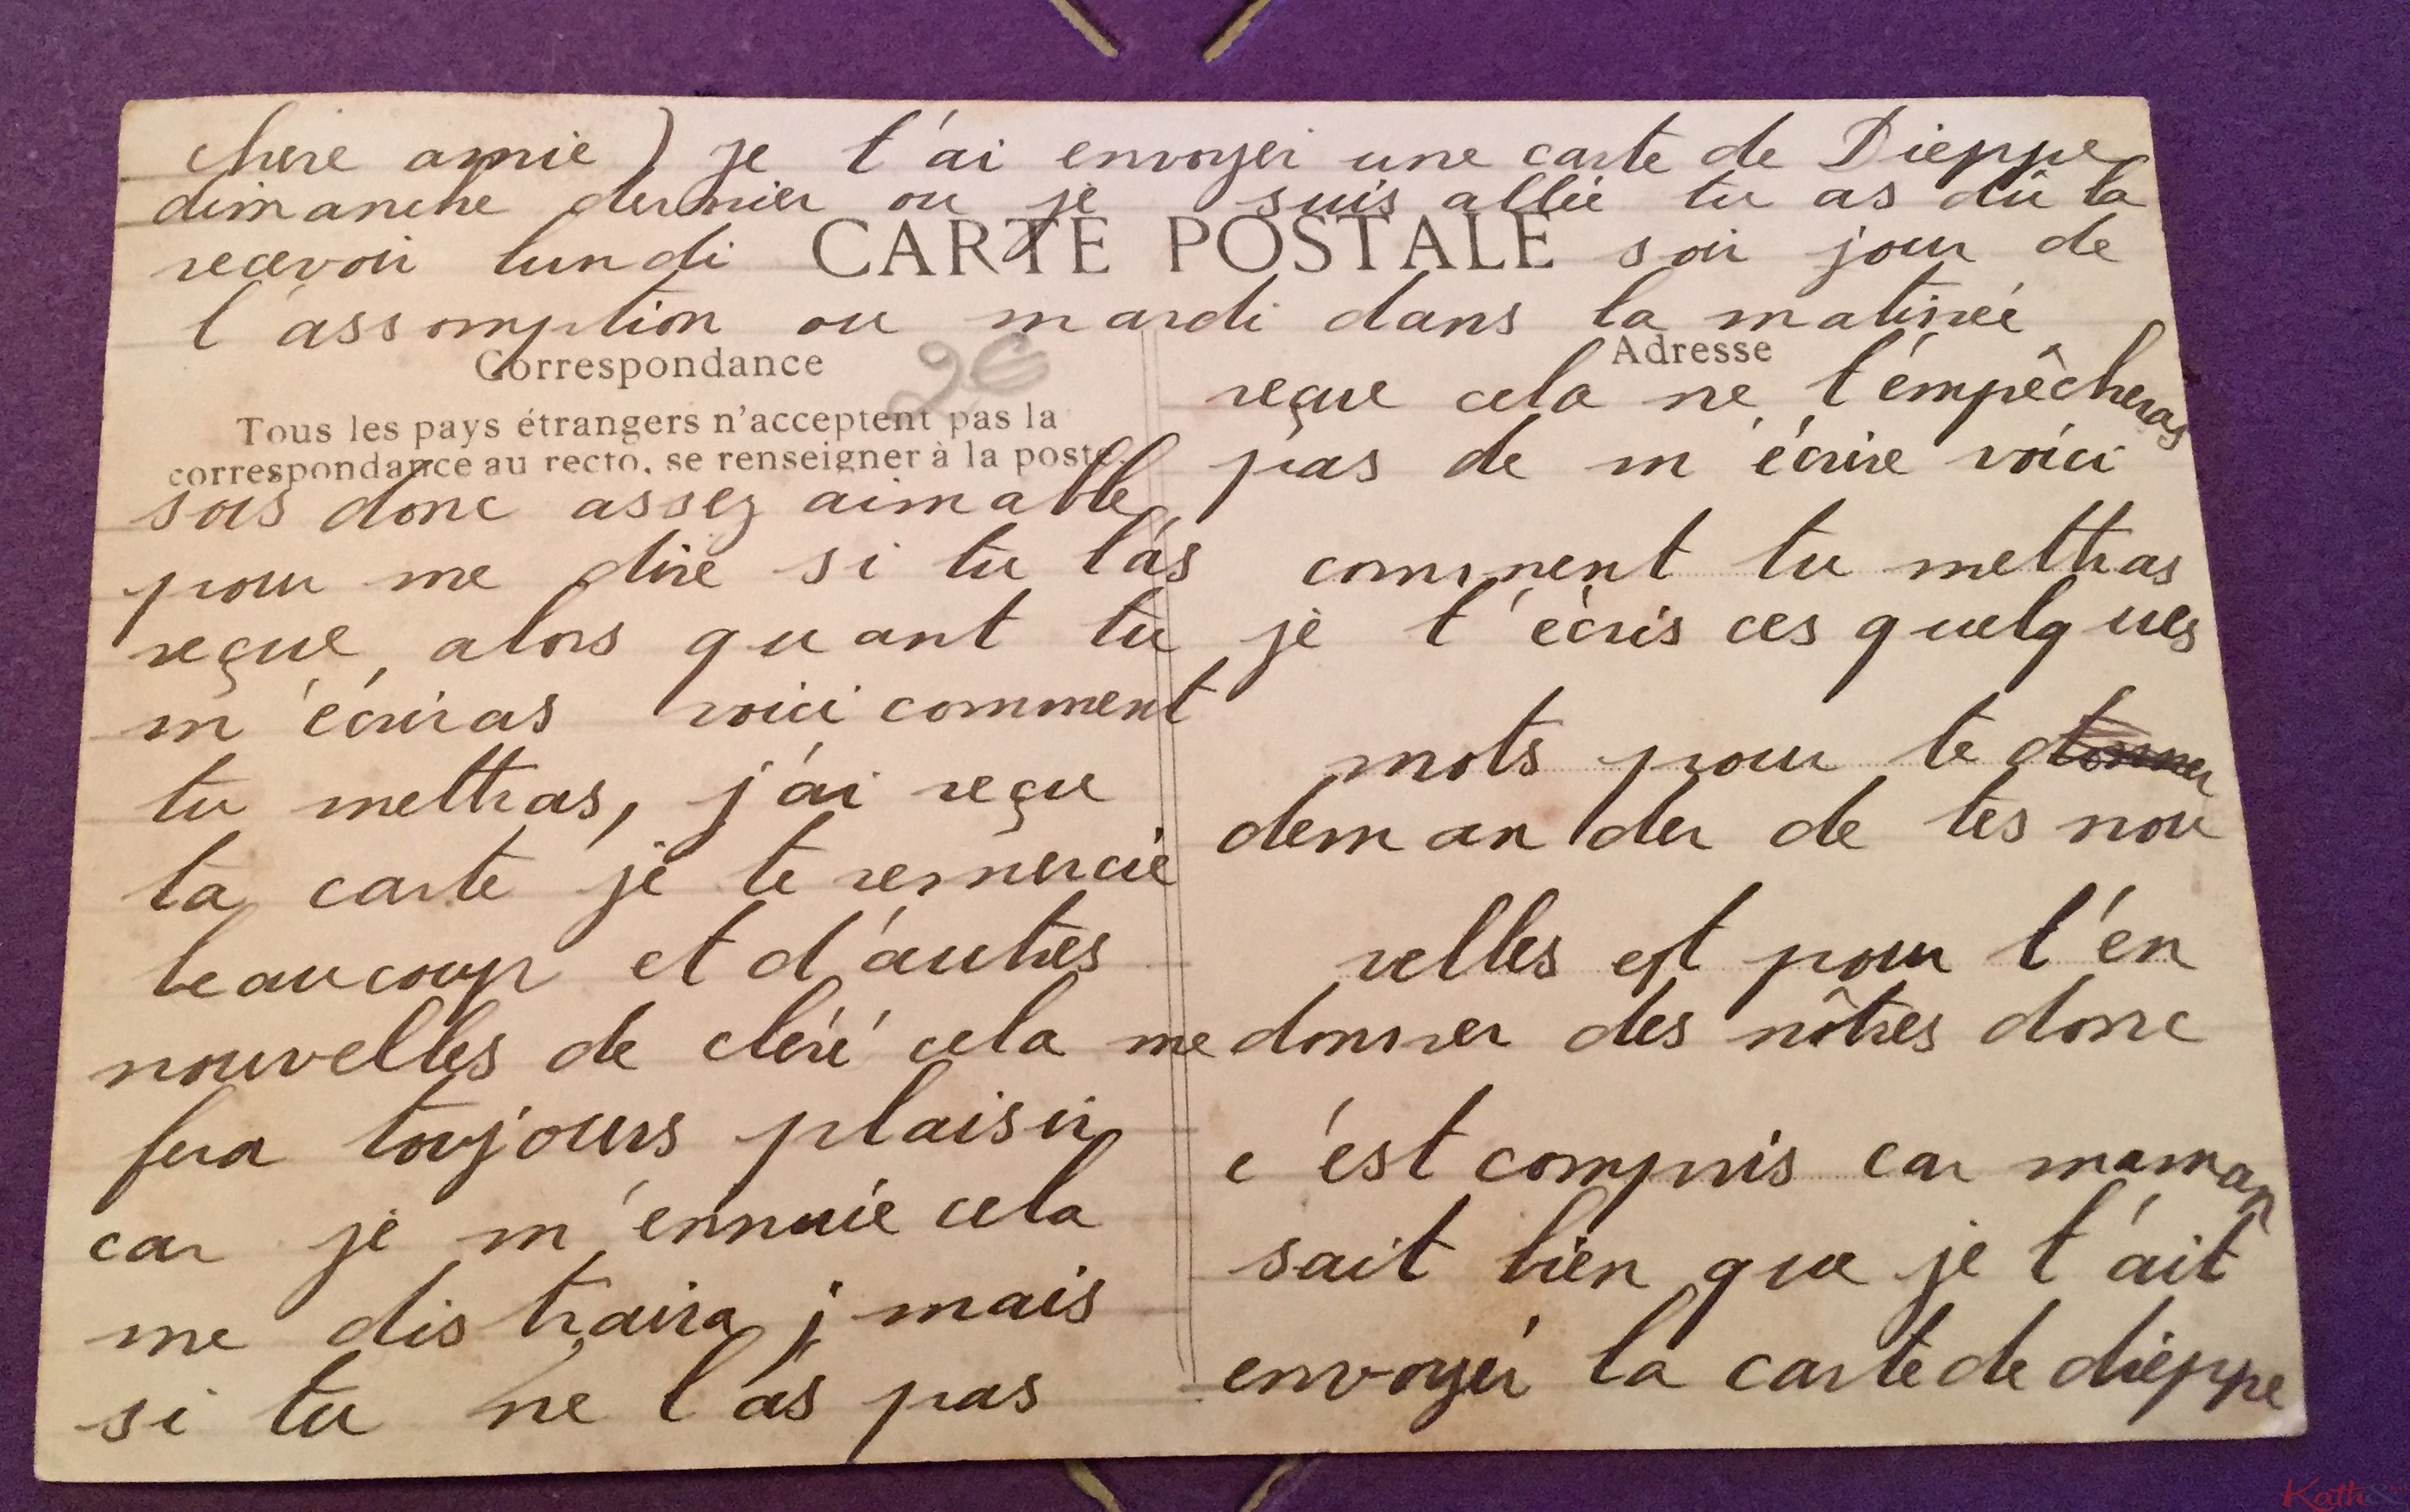 chere amie) je t'ai envoyéi une carte de Dieppe
dimanche dernier ou je suis allée tu as dû la
recevoir lundi CARTE POSTALE soir jour de
l'assomption ou mardi dans la matinée
Correspondance
2€
Tous les pays étrangers n'acceptent pas la
correspondance au recto, se renseigner à la poste.
sois donc assez aimable
pour me dire si tu l'as
reçue, alors quant tu
m'écriras voici comment
tu mettras, j'ai reçue
ta carte je te remercie
beaucoup et d'autres
nouvelles de cléré cela me
fera toujours plaisir
car je m'ennuie cela
me distraira j mais
si tu ne l'as pas
Adresse
reçue cela ne t'émpêcheras
pas de m'écrire voici
comment tu mettras
je t'écris ces quelques
mots pour te donner
demander de tes nou
velles et pour t'en
donner des nôtres donc
c'est compris car maman
sait bien que je t'ait
envoyéi la carte de dieppe